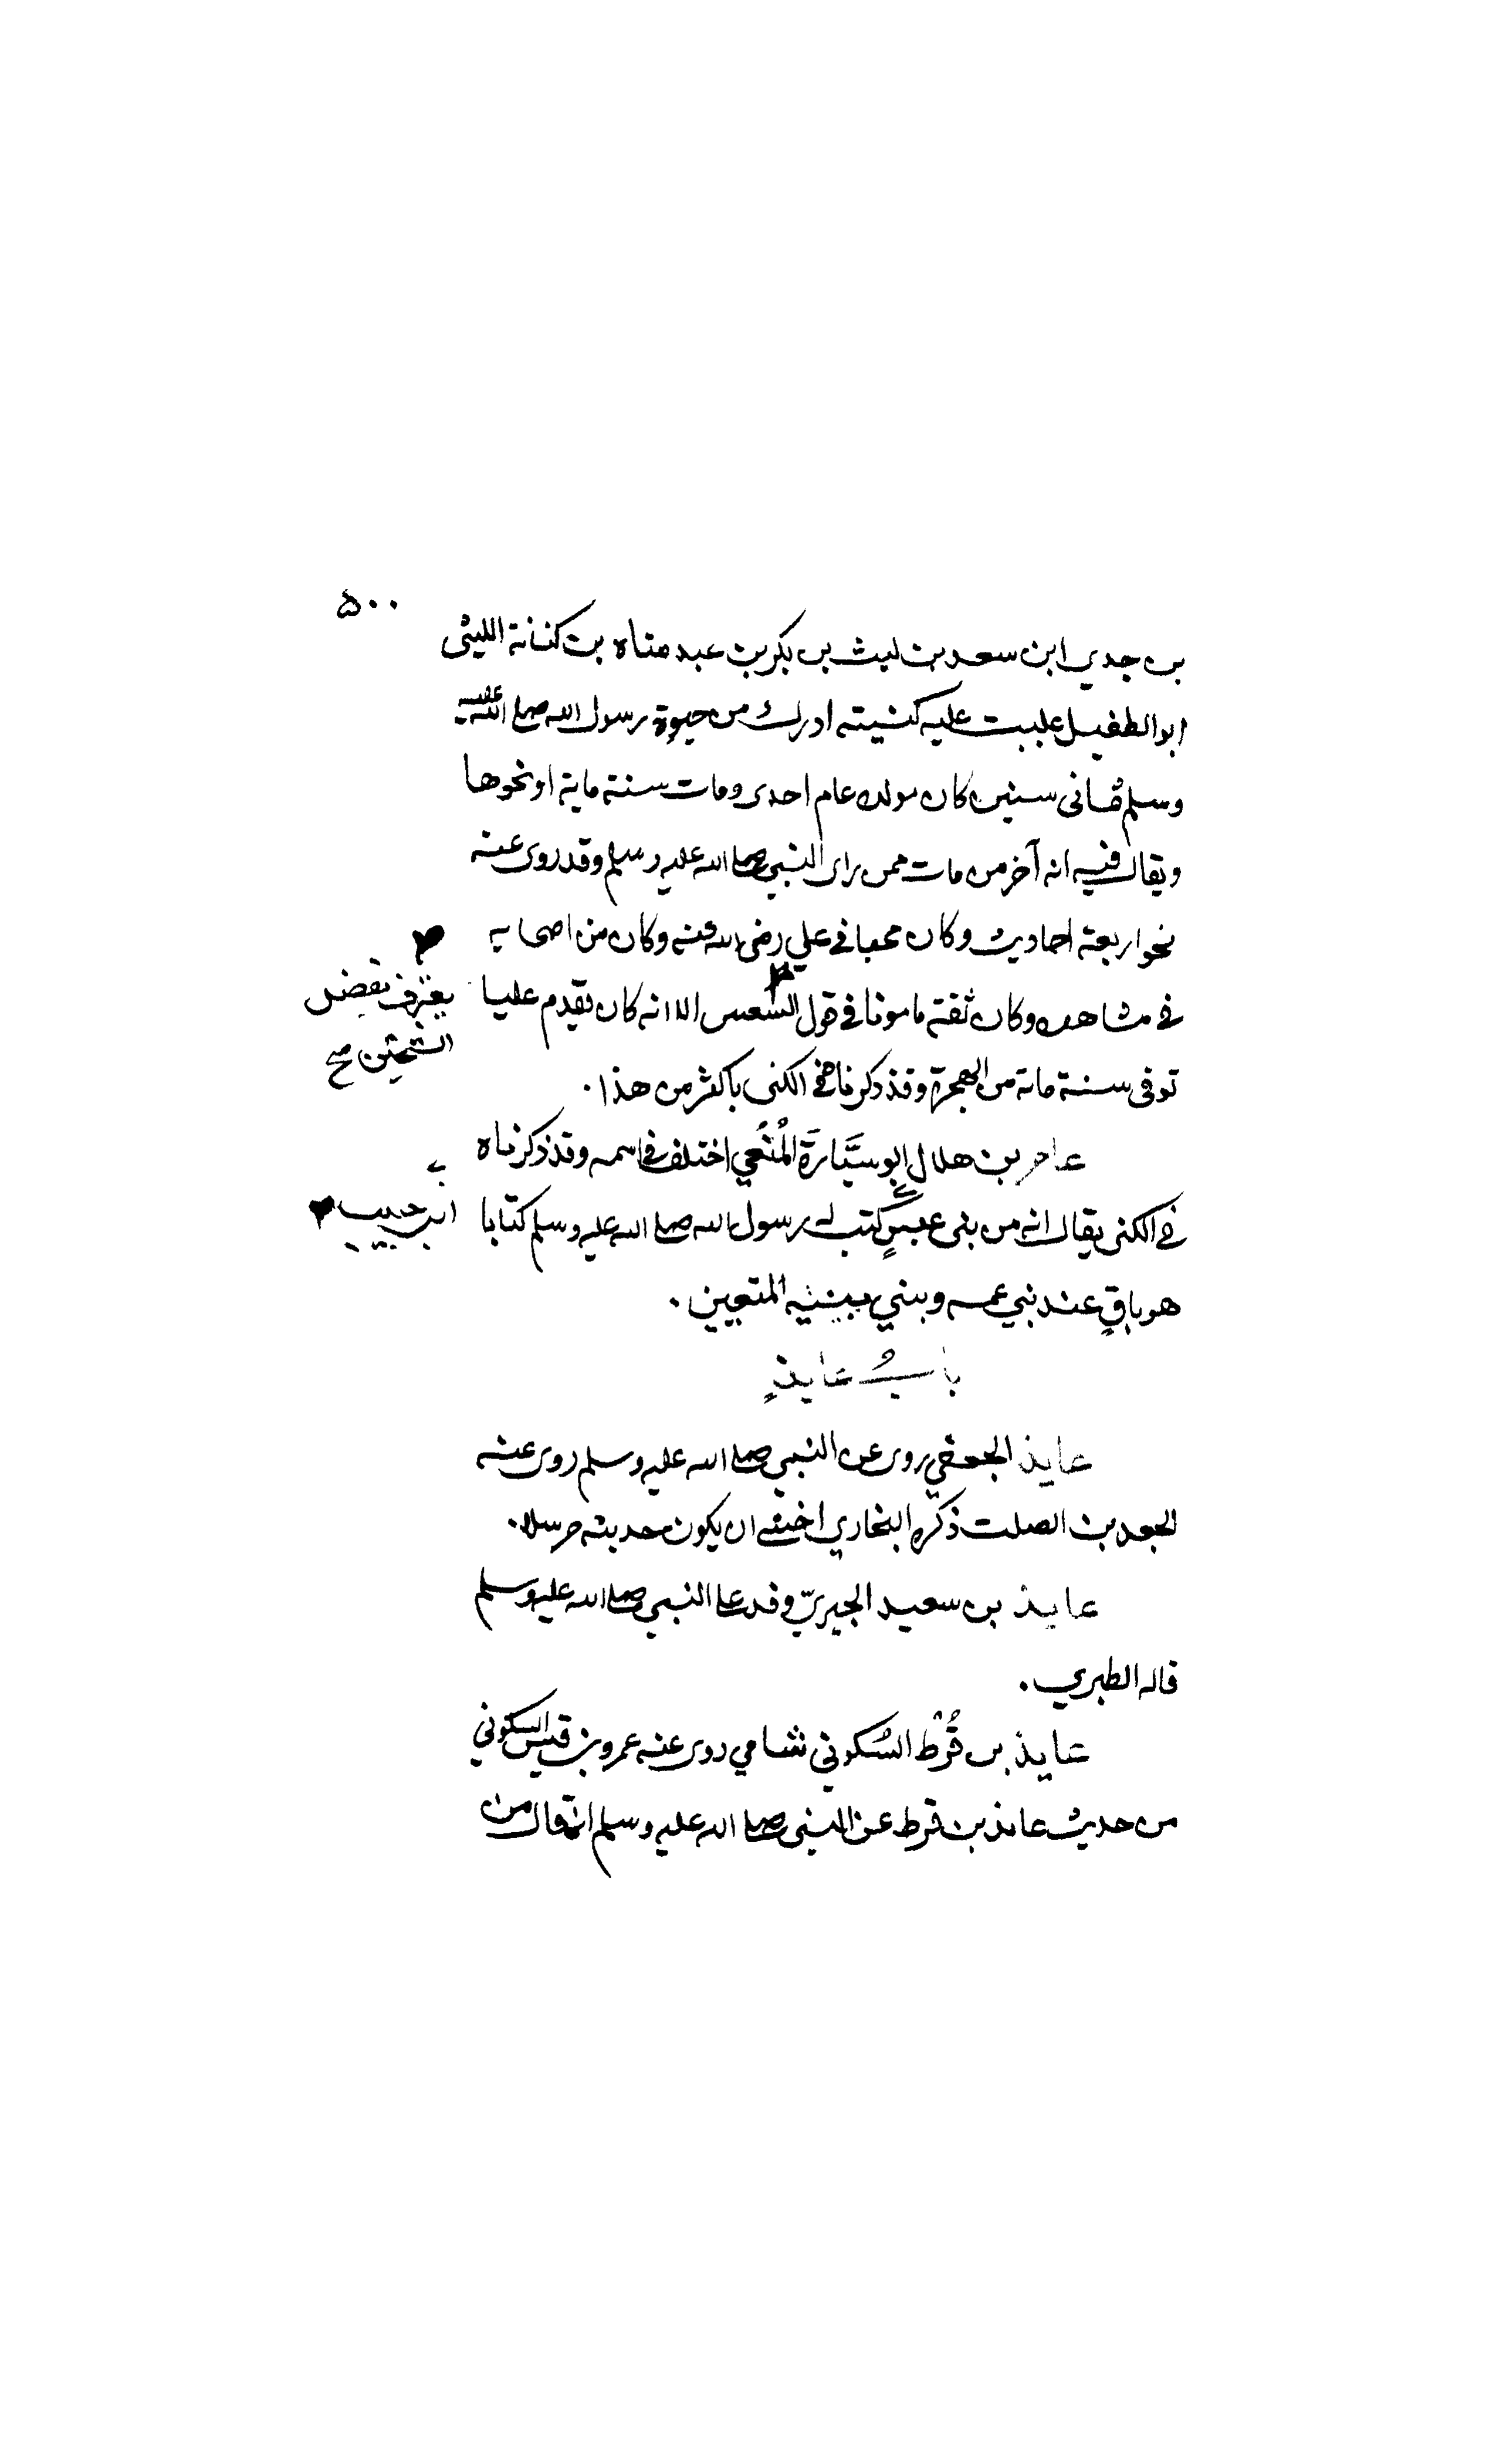 ۵۰۰
بن جدي ابن سعد بن ليث بن بكر بن عبد مناه بن كنانة الليثى
ابو الطفيل غلبت عليه كنيته ادرك من حيوة رسول الله صلى الله عليه
وسلم ثمانى سنين كان مولده عام احدى ومات سنة ماية او نحوها
ويقال فيه انه آخر من مات ممن راى النبي صلى الله عليه وسلم وقد روى عنه
نحو اربعة احاديث وكان محبا في علي رضى الله عنه وكان من اصحابه
في مشاهده وكان ثقة مامونا في قول الا انه كان يقدم عليا
يعترف بفضل
الشيخين صح
توفى سنة مائة من الهجرة وقد ذكرناه في الكنى باكثر من هذا.
عامر بن هلال ابو سَيَّارَة المُتُعي اختلف في اسمه وقد ذكرناه
في الكنى يقال انه من بنى عبسٍ كتب له رسول الله صلى الله عليه وسلم كتابا
ابن حبيب
هو باقٍ عند بني عمه وبني بنيه المتعيين.
بابُ عايذٍ
عايذ الجعفي روى عن النبي صلى الله عليه وسلم روى عنه
الجعد بن الصلت ذكره البخاري اخشى ان يكون حديثه مرسلا.
عايذ بن سعيد الجيريّ وفد على النبي صلى الله عليه وسلم
قاله الطبري.
عايذ بن قُرْط السُكوني شامي روى عنه عمرو بن قيس السكوني
من حديث عائذ بن قرط عن النبى صلى الله عليه وسلم انه قال من